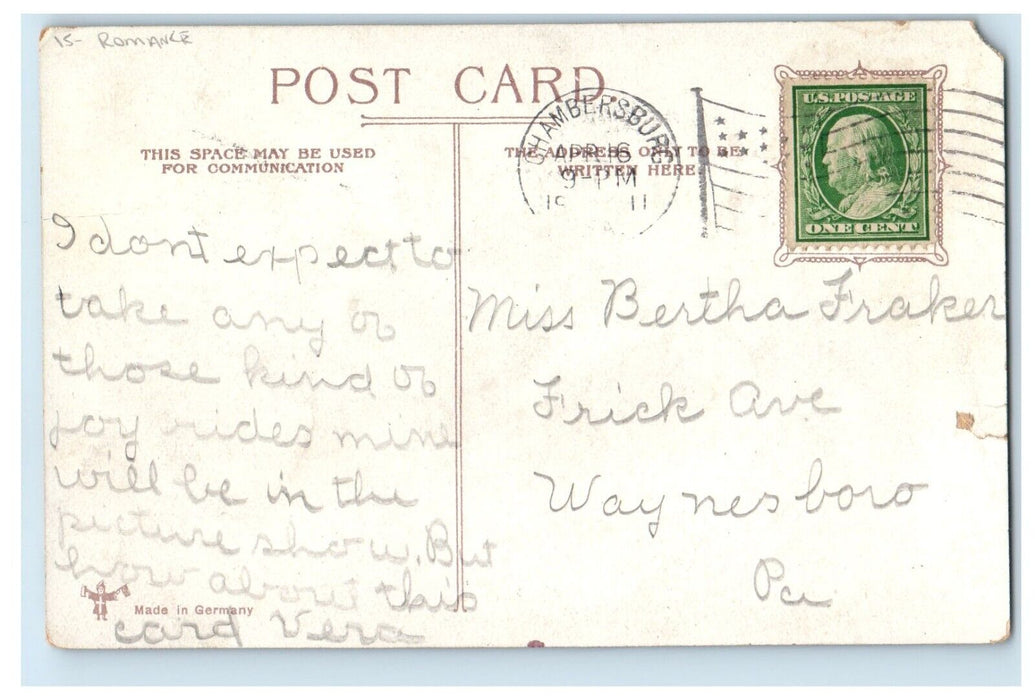 15- ROMANCE
POST CARD
THIS SPACE MAY BE USED
FOR COMMUNICATION
THE ADDRESS ONLY TO BE
WRITTEN HERE
CHAMBERSBURG
APR 6
9-PM
19 11
U.S. POSTAGE
ONE CENT
I dont expect to
take any of
those kind of
joy rides mine
will be in the
picture show. But
how about this
card Vera
Miss Bertha Fraker
Frick Ave
Waynesboro
Pa
Made in Germany